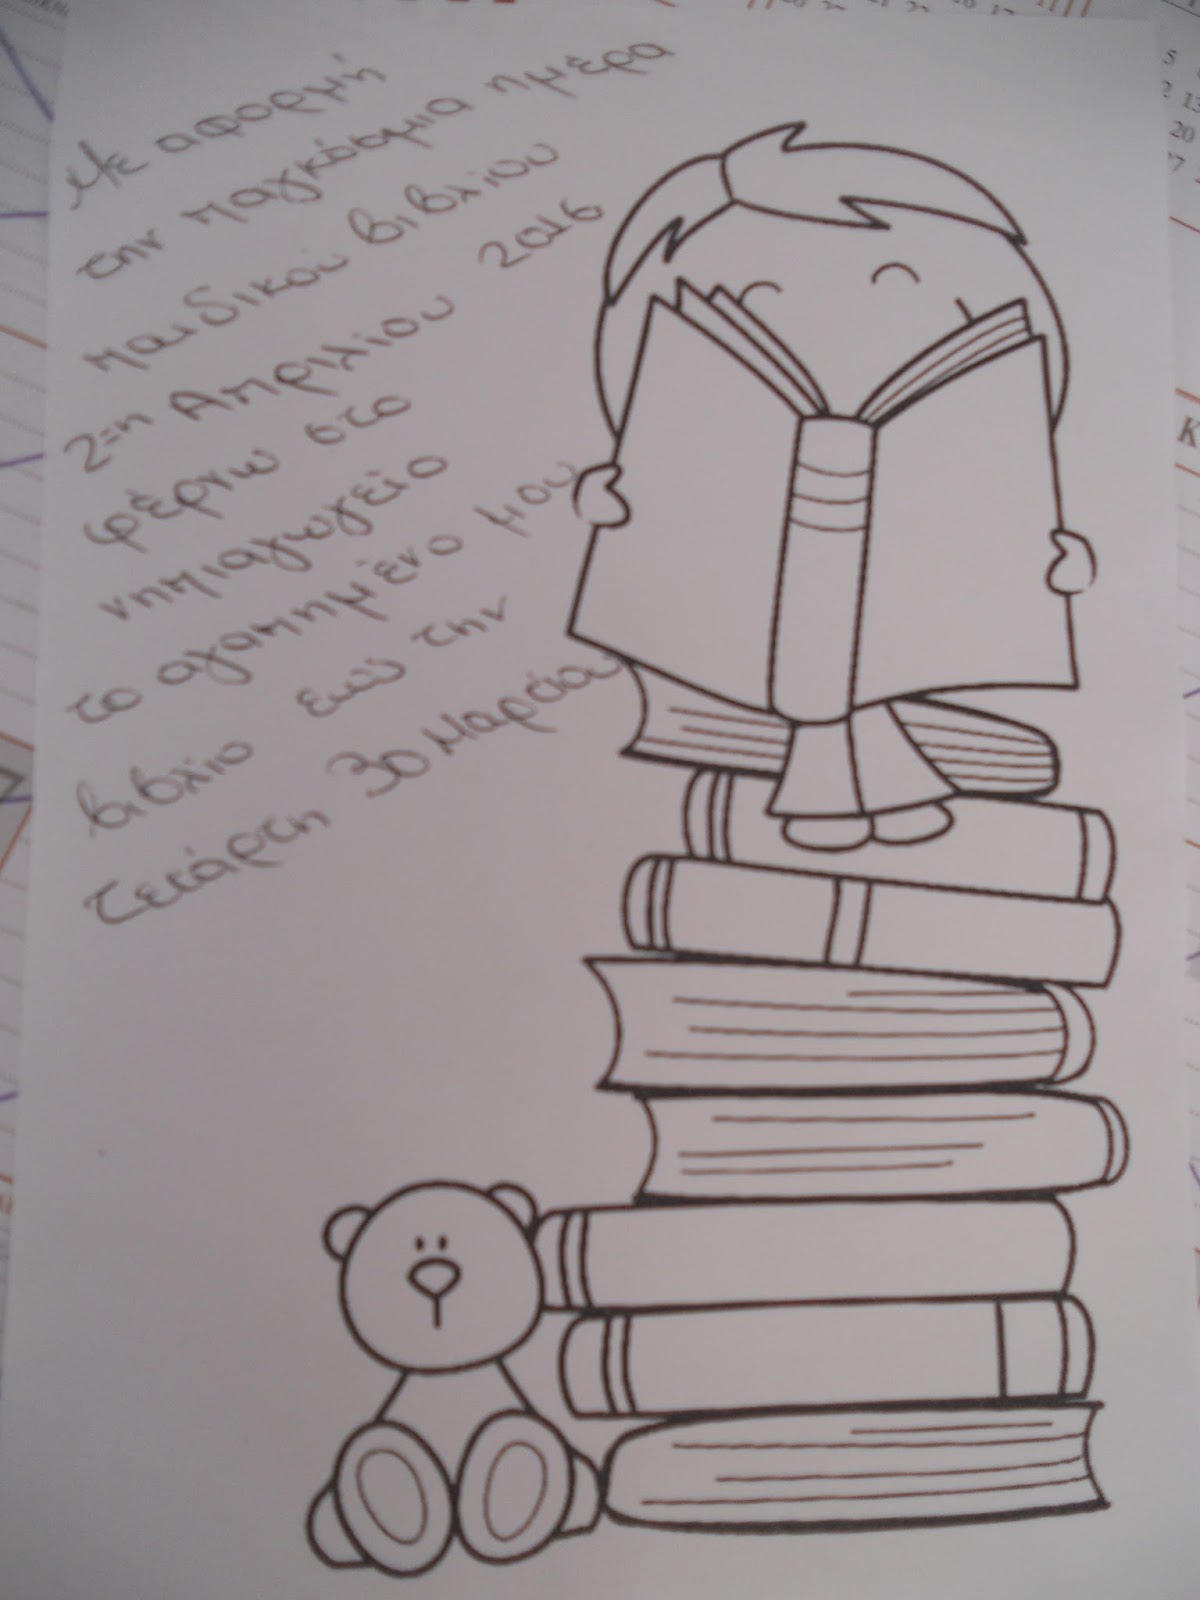 Με αφορμή
την παγκόσμια ημέρα
παιδικού βιβλίου
2=η Απριλίου 2016
φέρνω στο
νηπιαγωγείο
το αγαπημένο μου
βιβλίο εως την
Τετάρτη 30 Μαρτίου
5
2 13
20
27
Κ